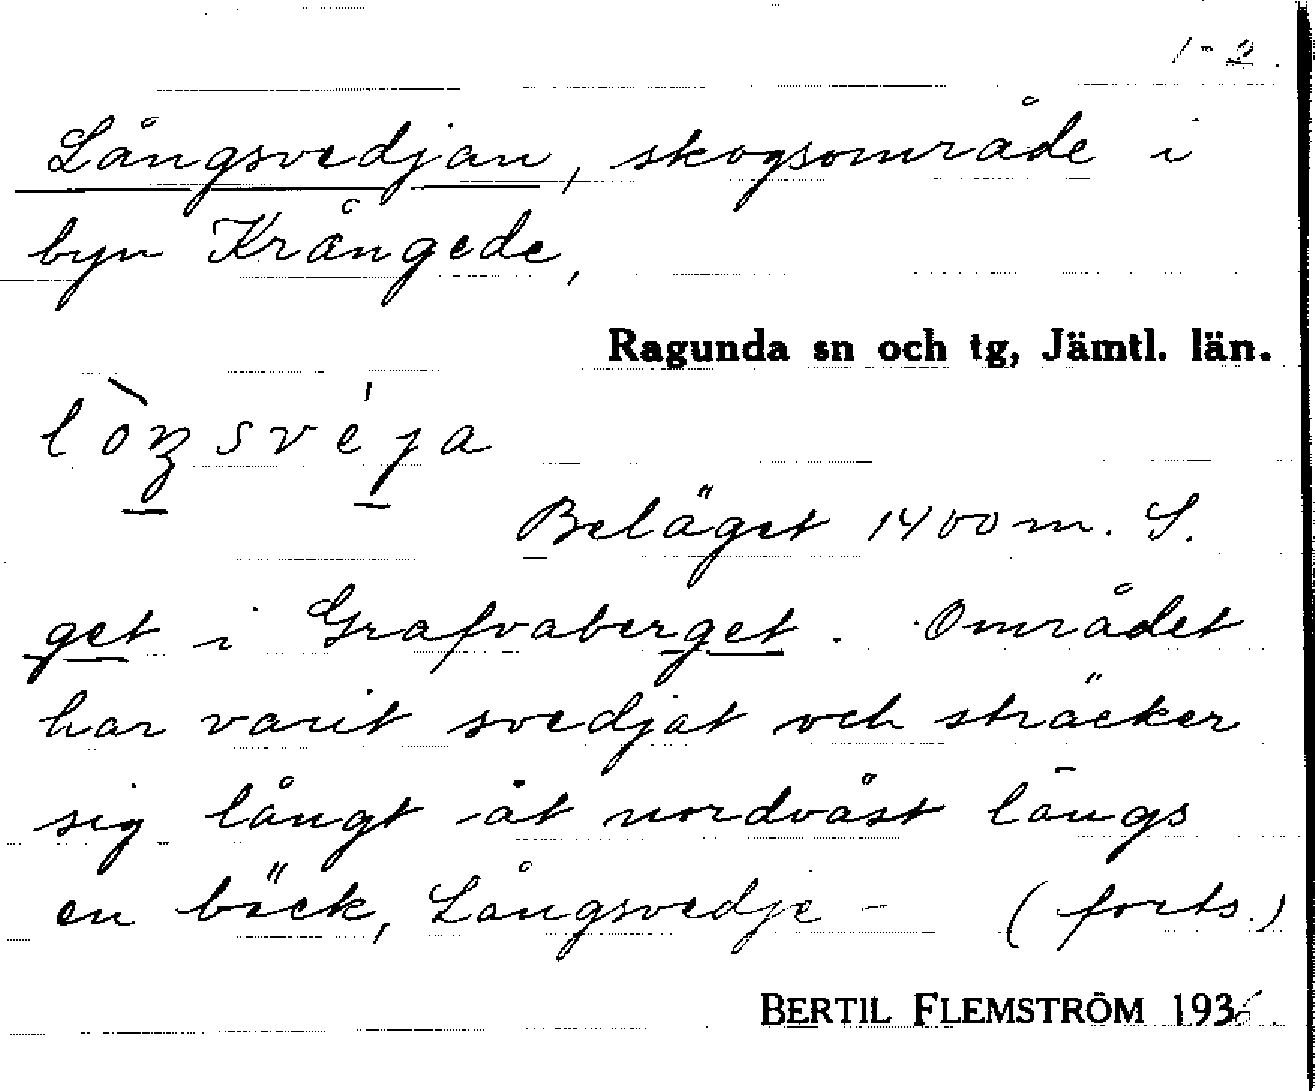 1-2.
Långsvedjan, skogsområde i
byn Krångede,
Ragunda sn och tg, Jämtl. län.
Beläget 1400 m. S.
get i Grafvaberget. Området
har varit svedjat och sträcker
sig långt åt nordväst längs
en bäck, Långsvedje- (forts.)
BERTIL FLEMSTRÖM 1936.